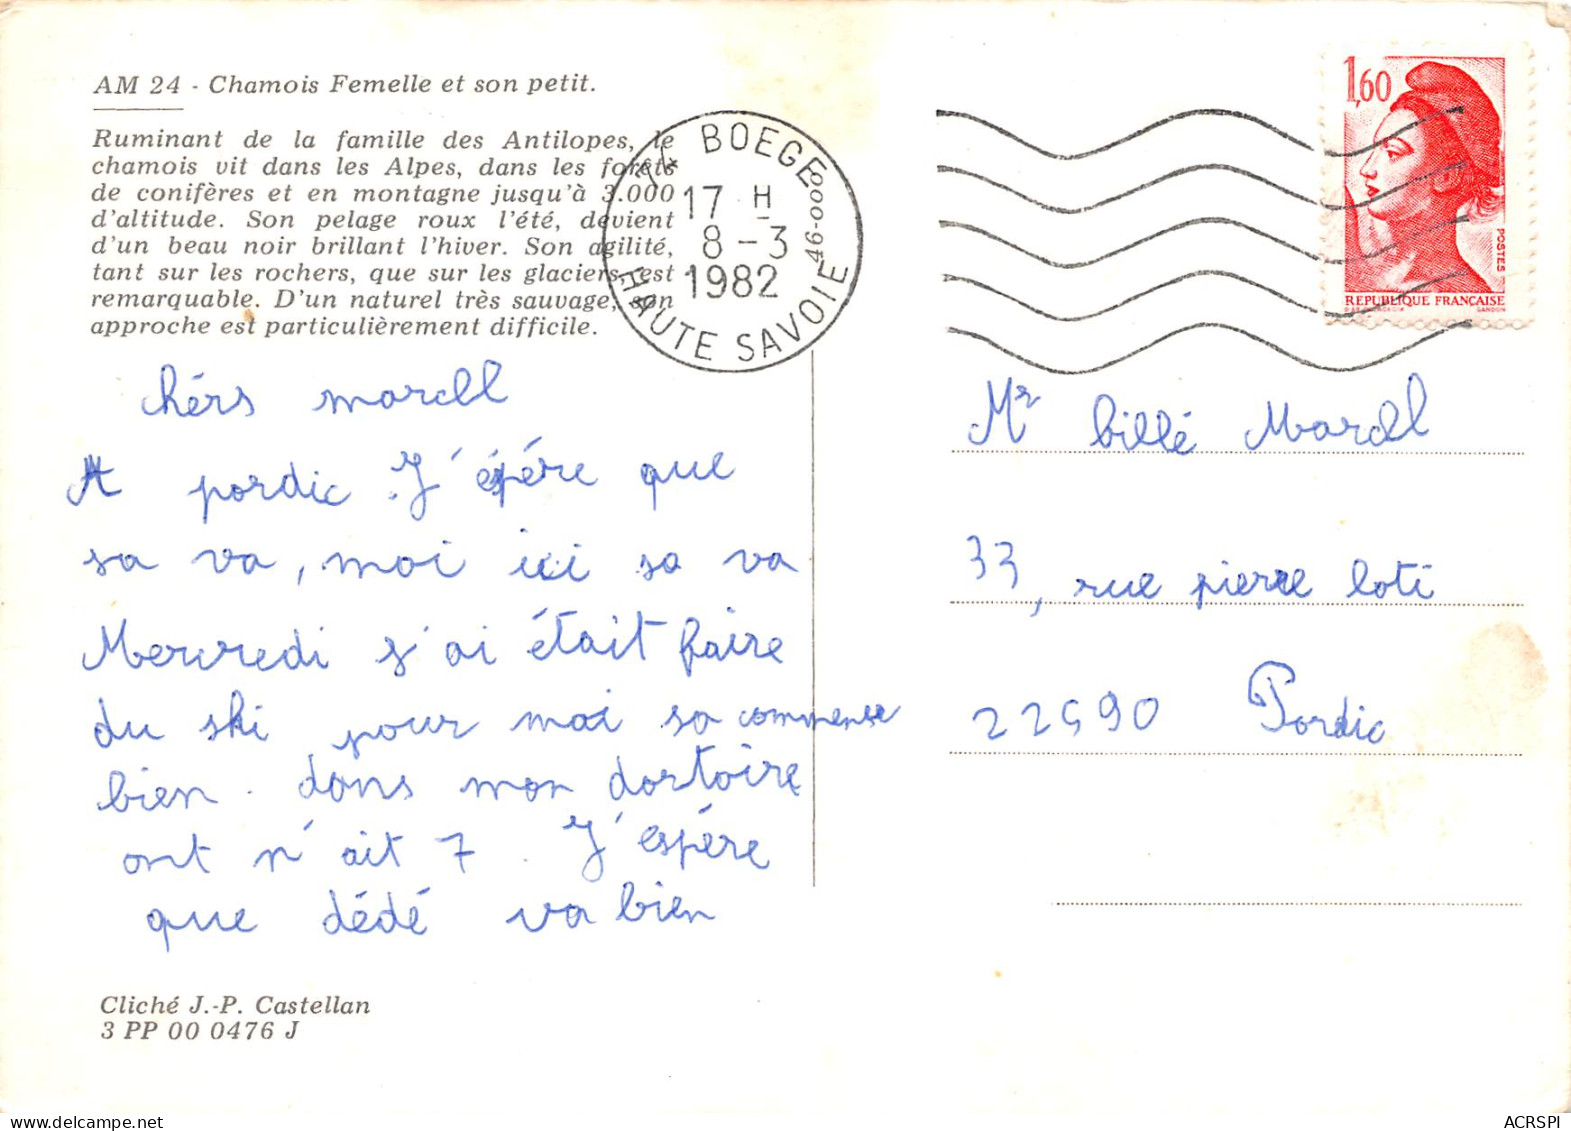 AM 24 - Chamois Femelle et son petit.
Ruminant de la famille des Antilopes, le
chamois vit dans les Alpes, dans les forêts
de conifères et en montagne jusqu'à 3.000
d'altitude. Son pelage roux l'été, devient
d'un beau noir brillant l'hiver. Son agilité,
tant sur les rochers, que sur les glaciers, est
remarquable. D'un naturel très sauvage, son
approche est particulièrement difficile.
BOEGE
17 H
8-3
1982
HAUTE SAVOIE
1,60
POSTES
REPUBLIQUE FRANÇAISE
GANDON
chérs marcell
A pordic. J'épére que
sa va, moi ici sa va
Mercredi j'ai était faire
du ski pour moi sa commense
bien. dans mon dortoire
ont n'ait 7. J'espére
que dédé va bien
Mr billé Marcell
33, rue pierre loti
22590 Pordic
Cliché J.-P. Castellan
3 PP 00 0476 J
ACRSPI